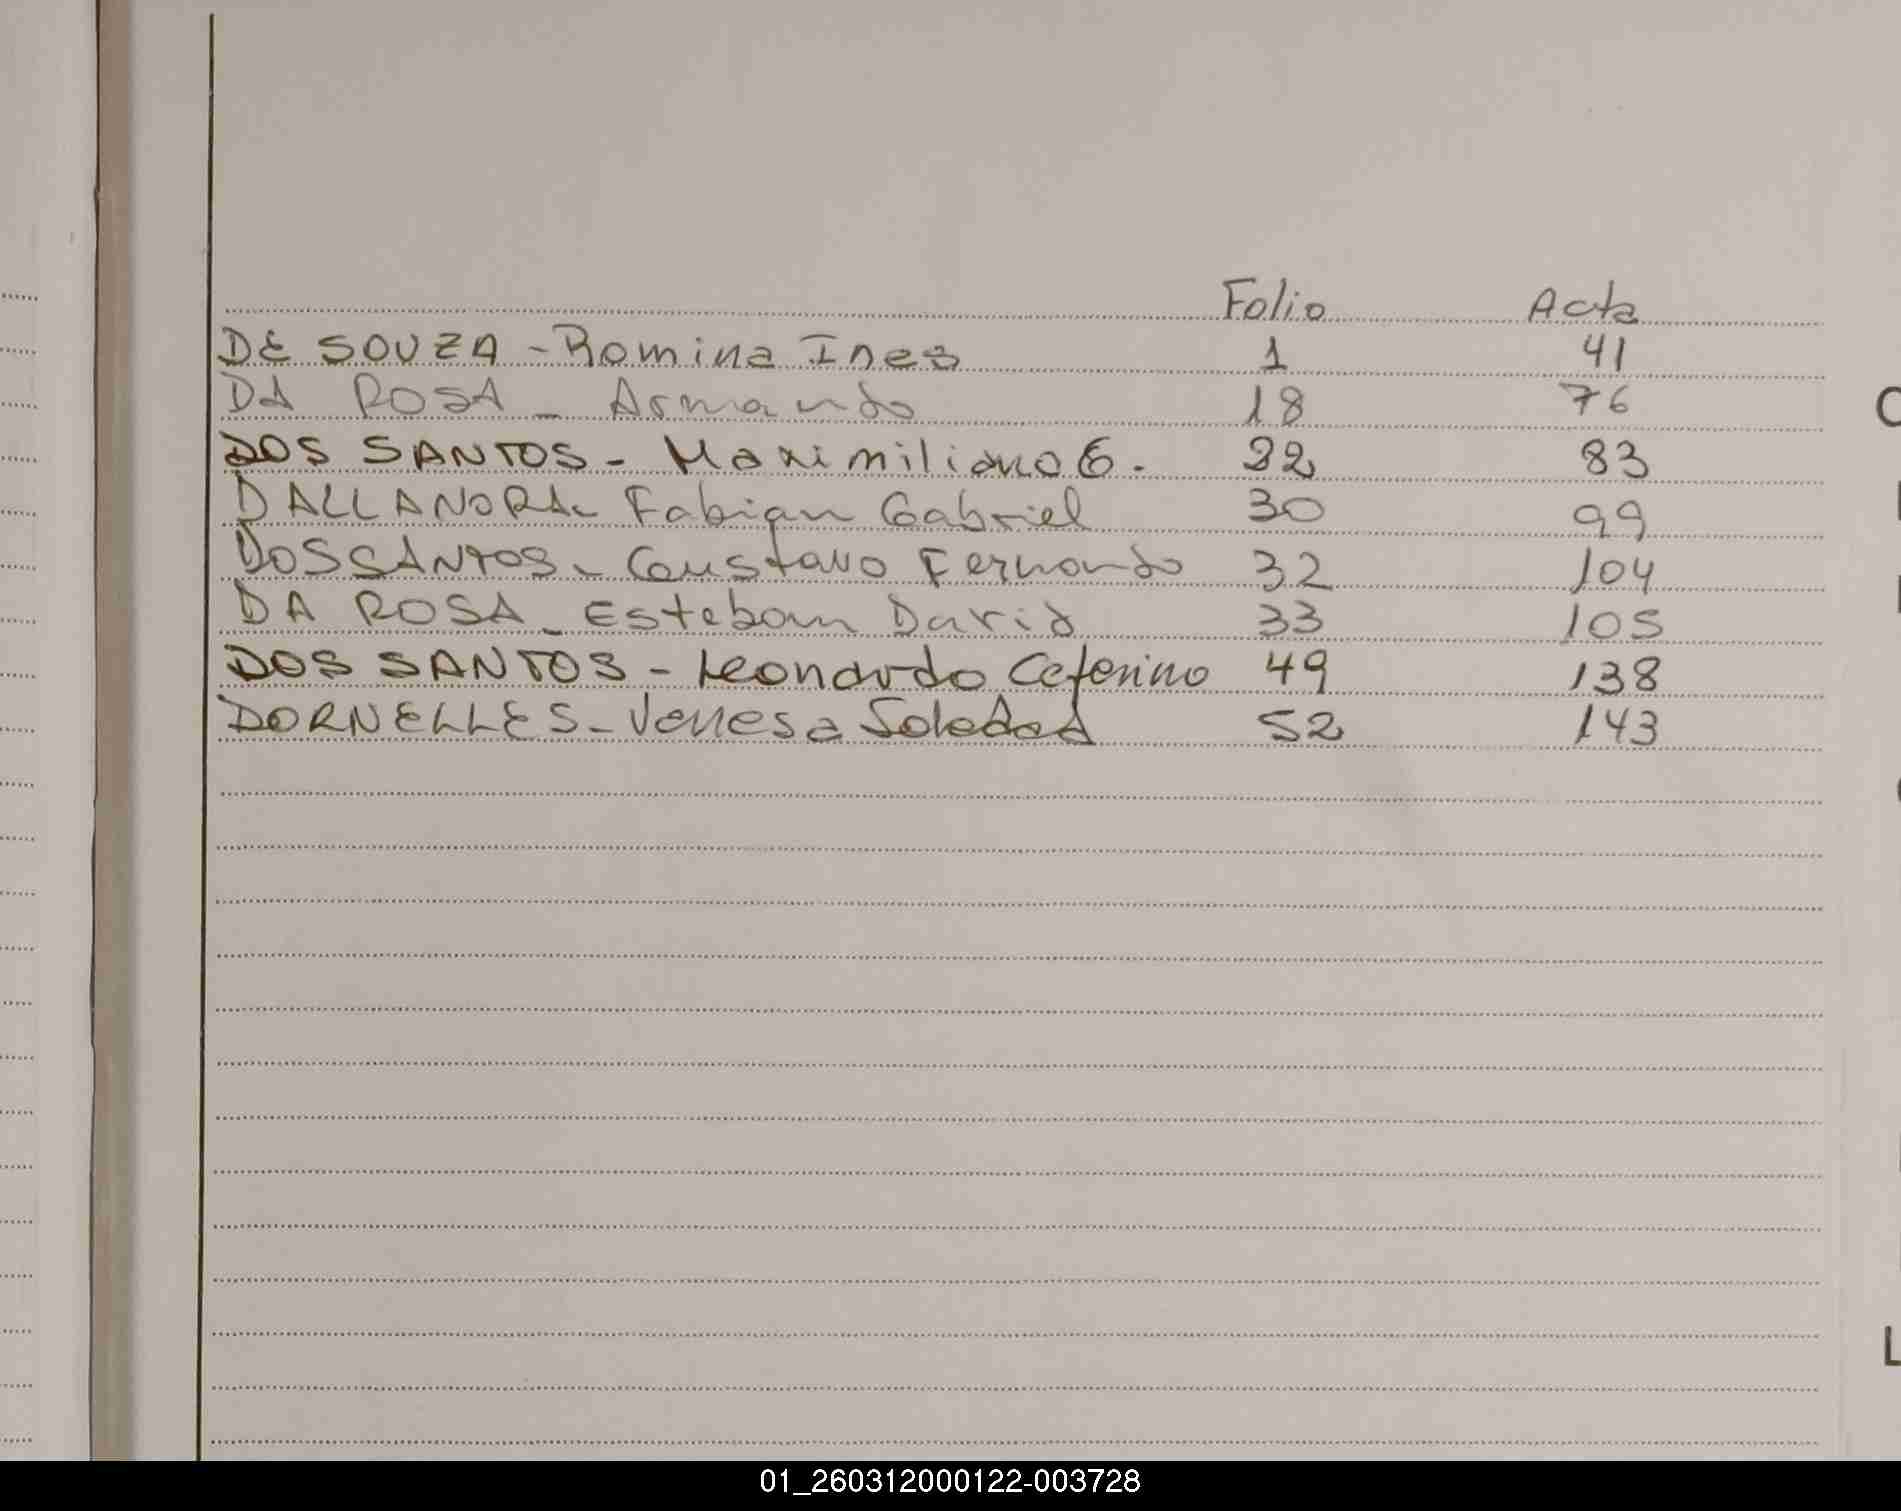 Folio Acta
DE SOUZA - Romina Ines 1 41
DA ROSA - Armando 18 76
DOS SANTOS - Maximiliano G. 22 83
DALLANORA - Fabian Gabriel 30 99
DOS SANTOS - Gustavo Fernando 32 104
DA ROSA - Esteban David 33 105
DOS SANTOS - Leonardo Ceferino 49 138
DORNELLES - Vanesa Soledad 52 143
01_260312000122-003728